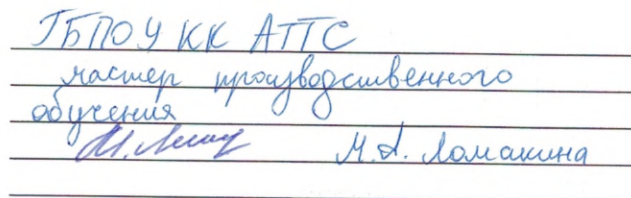 ГБПОУ КК АТТС
мастер производственного
обучения
М.А. Ломакина